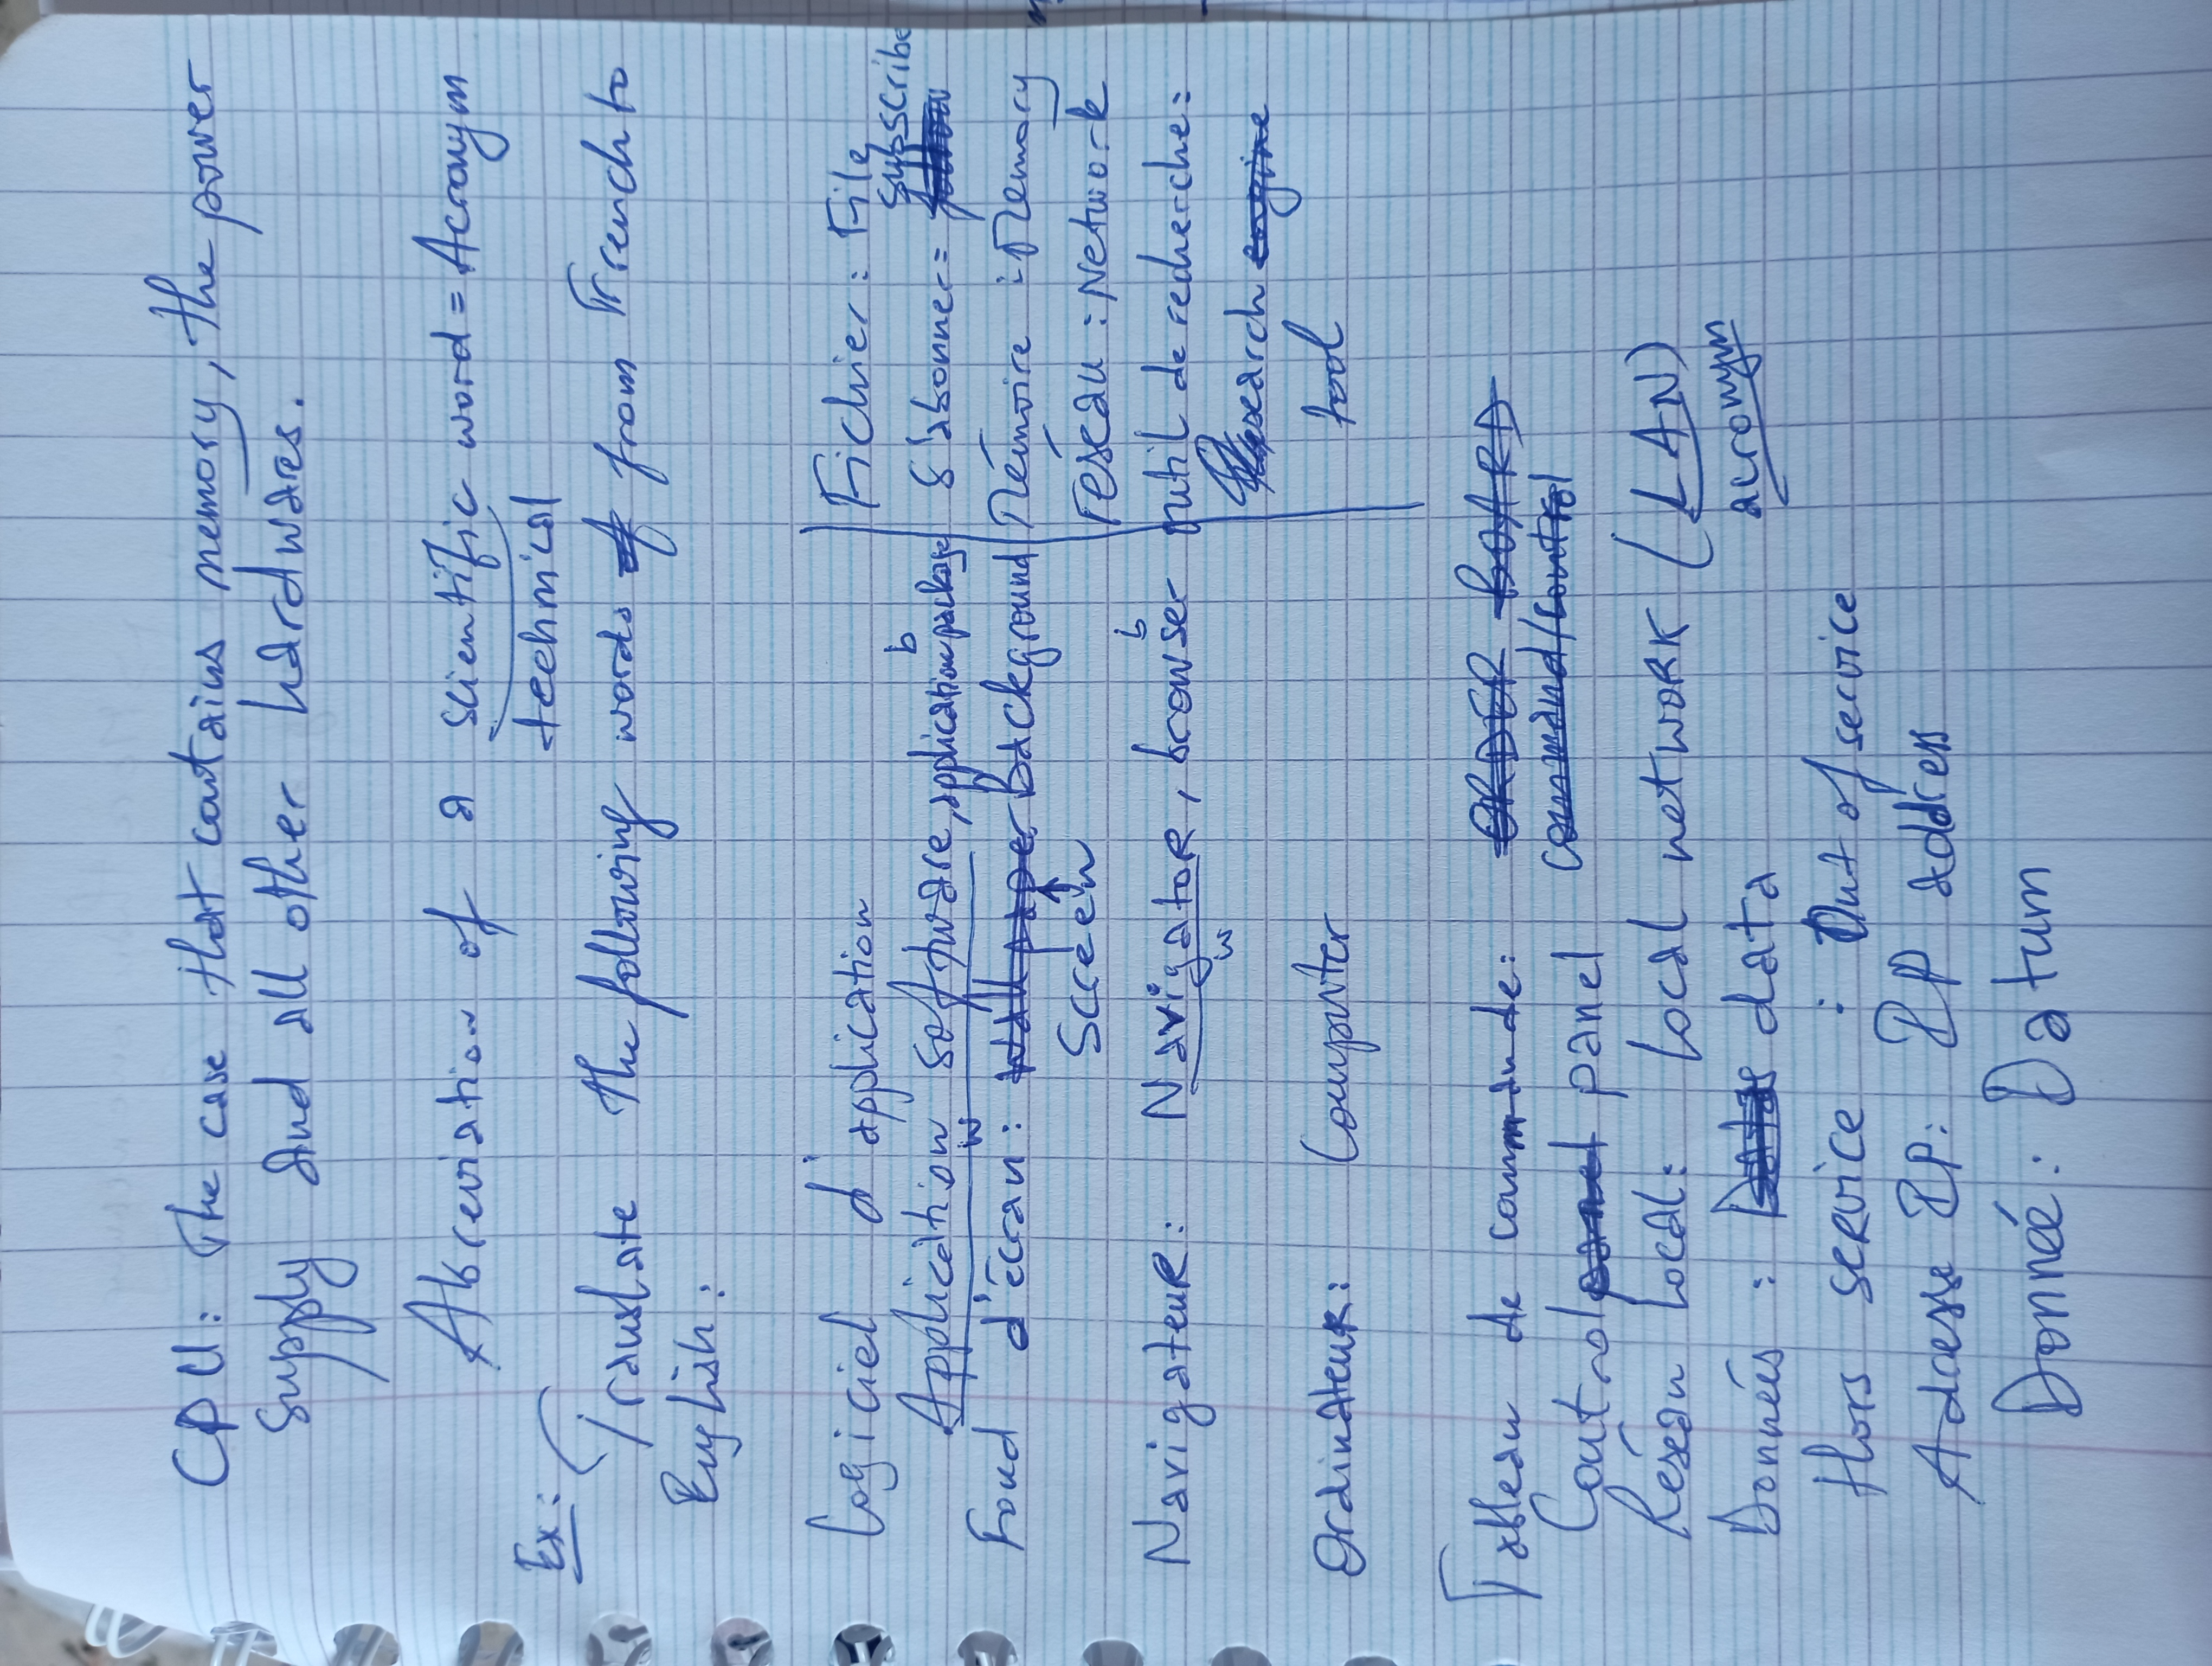 CPU: The case that contains memory, the power
supply and all other hardwares.
Abreviation of a scientific word = Acronym
technical
Ex:
Translate the following words of from French to
English:
Logiciel d'application
Application software, application package
w
b
Fond d'écran: Wall paper Background
Screen
Navigateur: Navigator, browser
w
b
Ordinateur: Computer
Fichier: File
subscribe
S'abonner= follow
Mémoire : Memory
réseau : Network
outil de recherche:
search engine
tool
Tableau de commande: ORDER BOARD
command/control
Control panel panel
Réseau local: Local network (LAN)
acronym
Données : Datas data
Hors service : Out of service
Adresse IP: IP address
Donnée: Datum